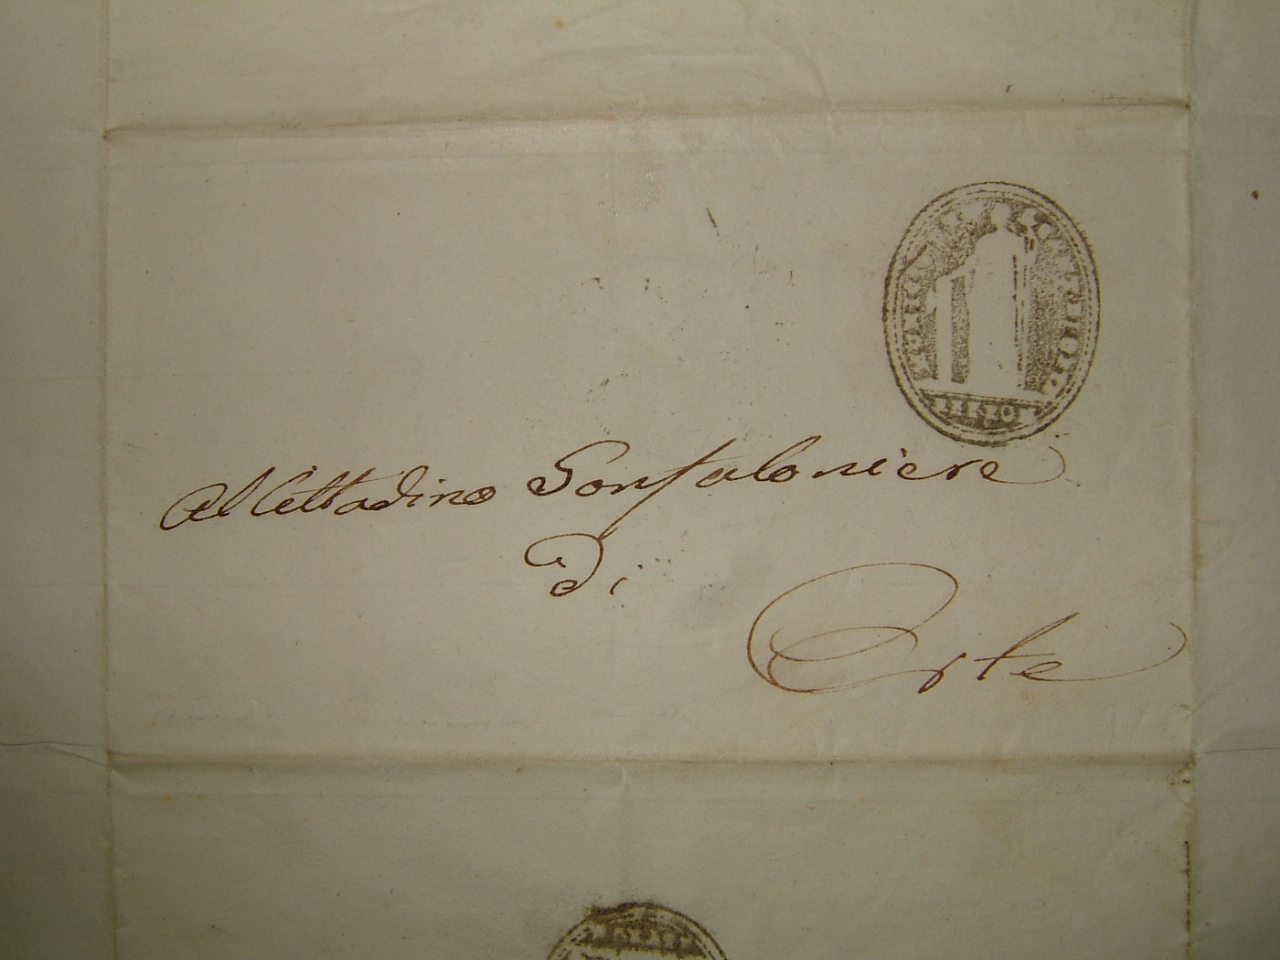 Al Cittadino Gonfaloniere
Di
Orte